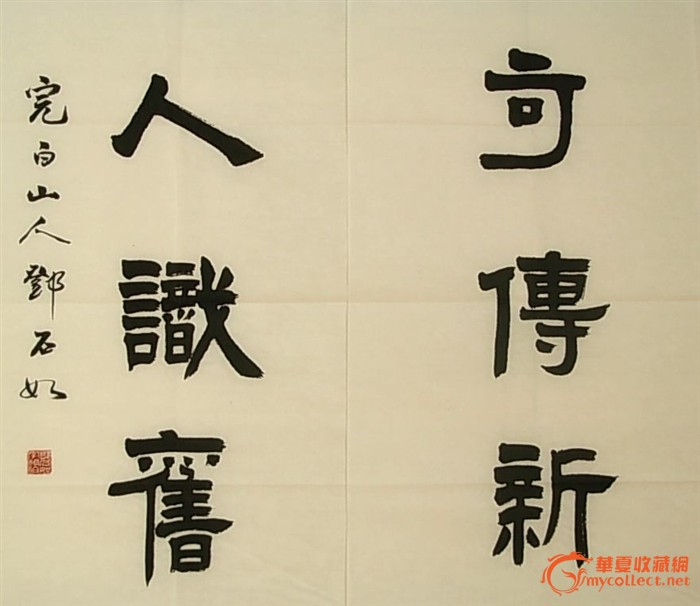 可傳新
人識舊
完白山人鄧石如
華夏收藏網
mycollect.net